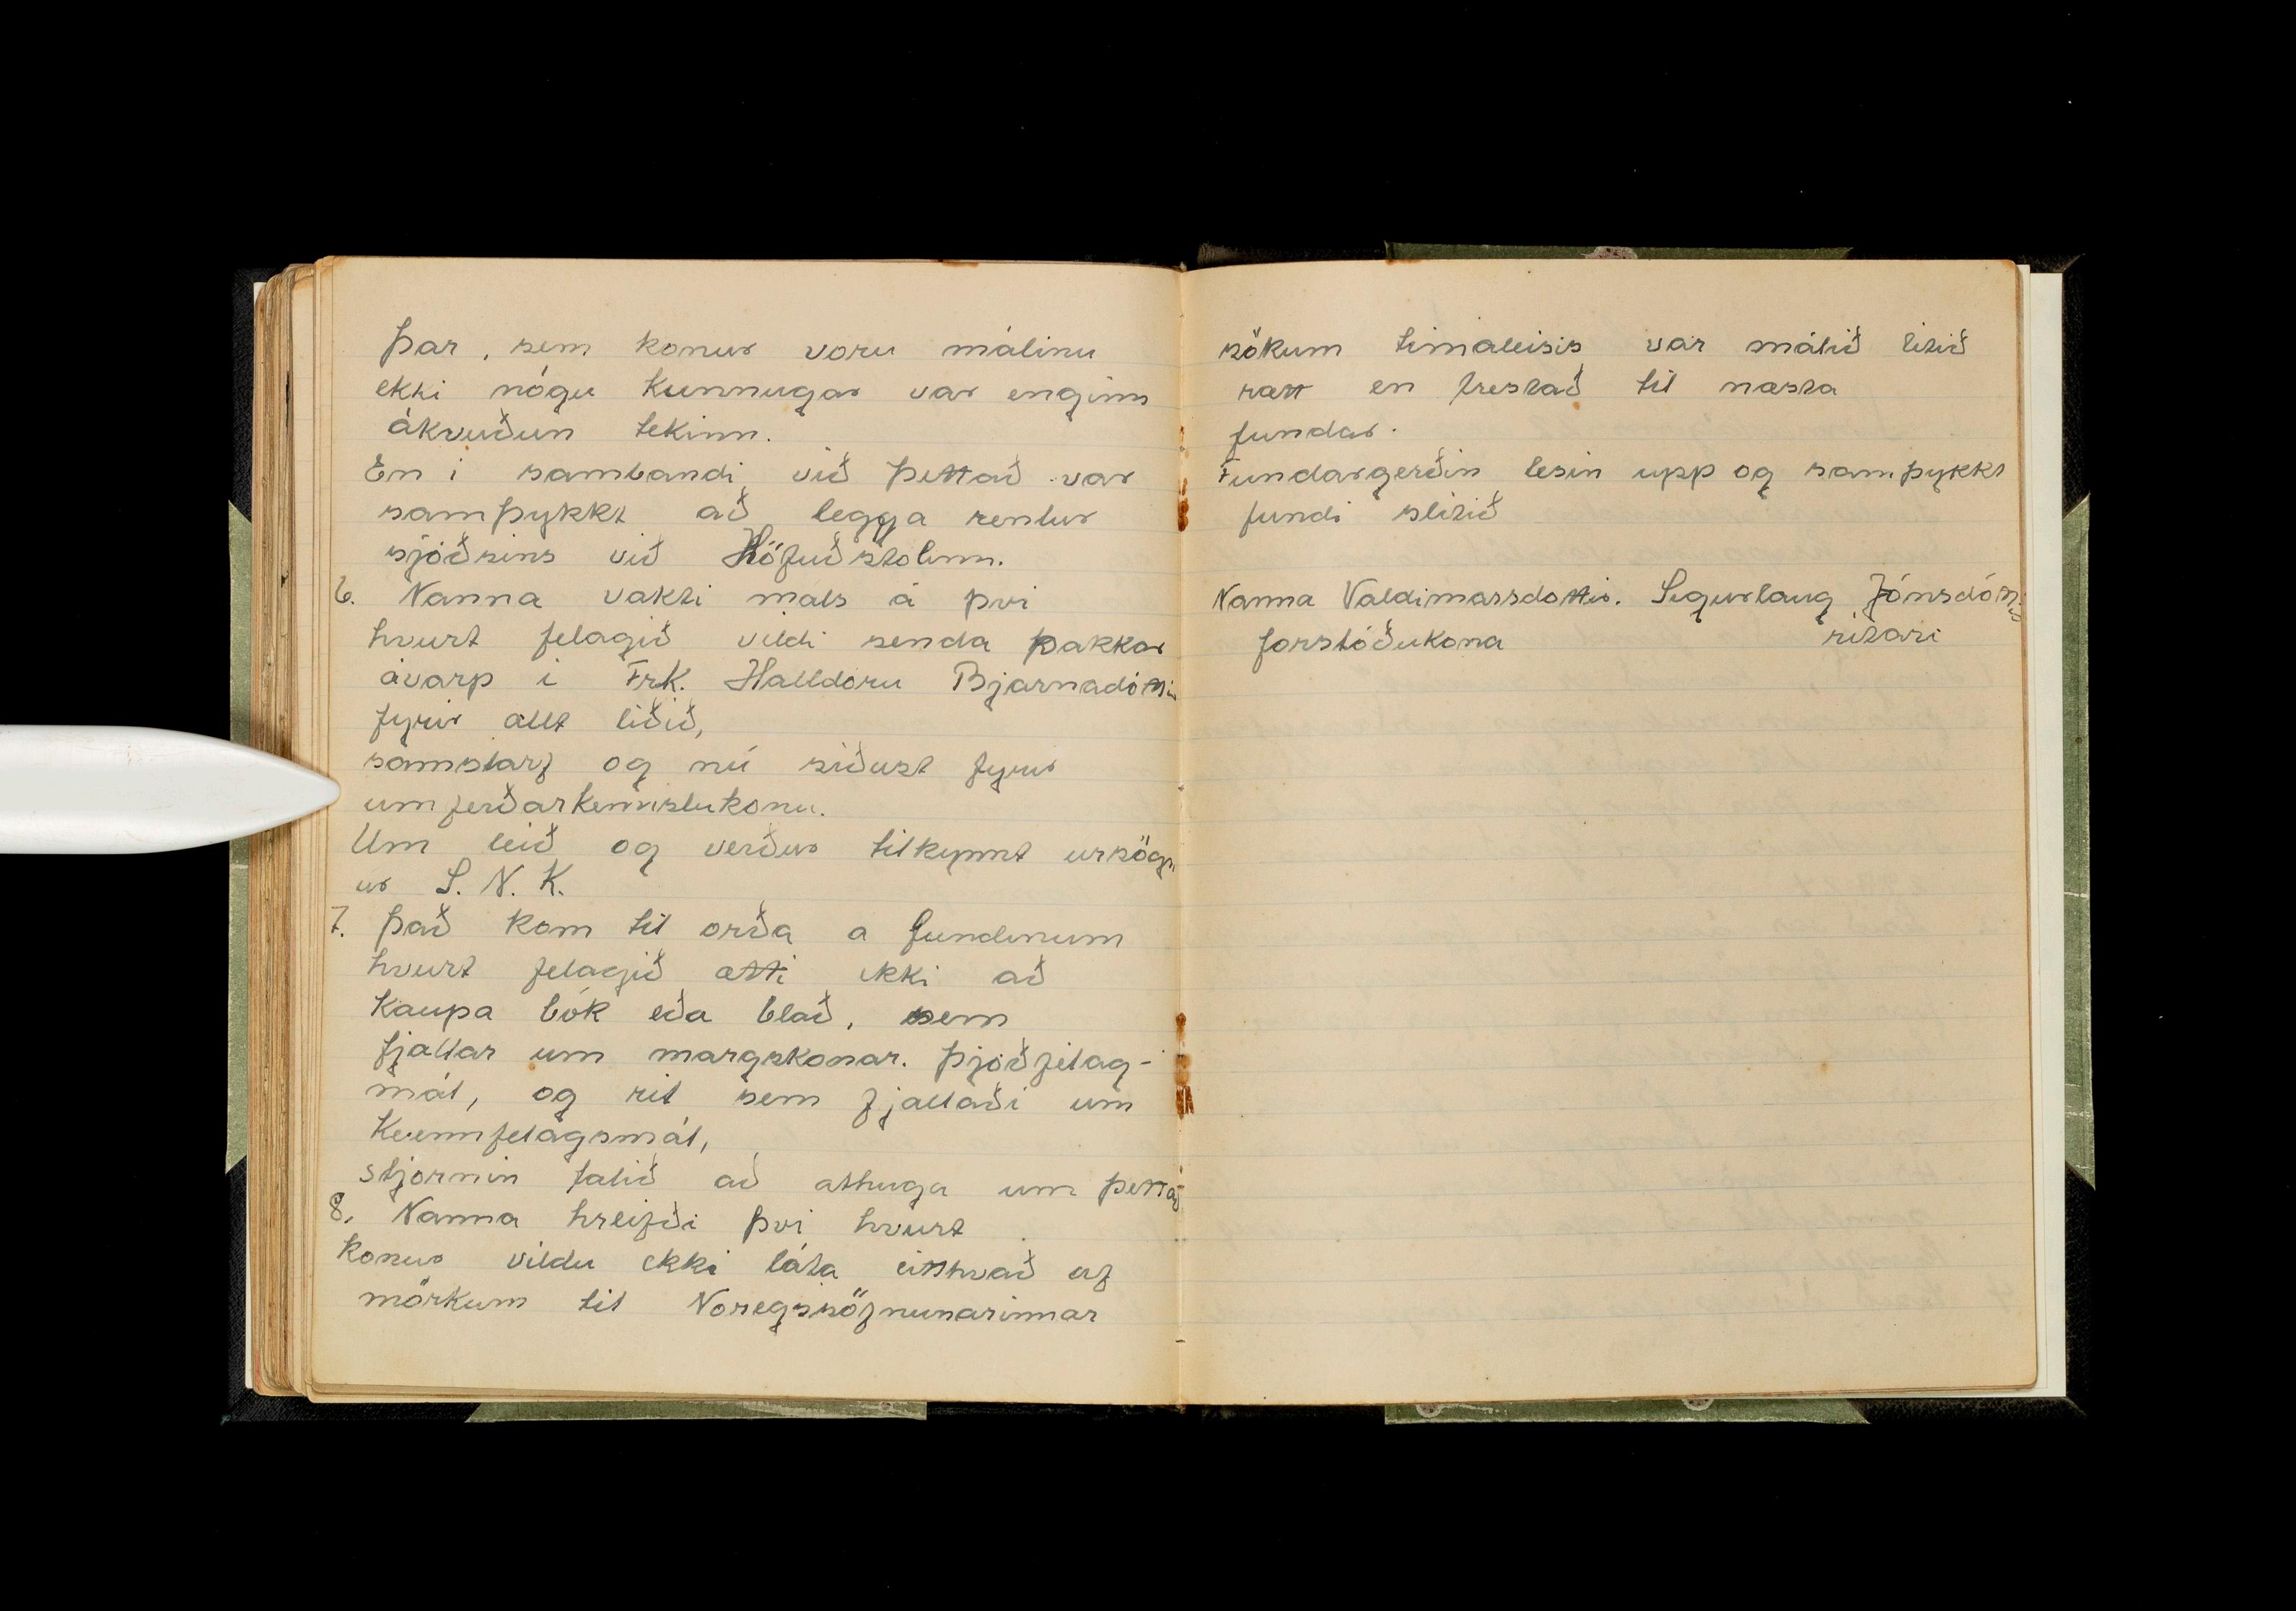 þar, sem konur voru málinu
ekki nógu kunnugar var enginn
ákvuðun tekinn.
En i sambandi við þettað var
samþykkt að leggja rentur
sjóðsins við Höfuðstolinn.
6. Nanna vakti mals á þvi
hvurt felagið vildi senda þakkar
ávarp i Frk. Halldoru Bjarnadóttir
fyrir allt liðið,
samstarf og nú siðust fyrir
umferðarkennslukonu.
Um leið og verður tilkynnt ursögn
ur S. N. K.
7. Það kom til orða a fundinum
hvurt felagið ætti ekki að
kaupa bók eða blað, sem
fjallar um margskonar. þjóðfelag-
mál, og rit sem fjallaði um
kvennfelagsmál,
stjornin falið að athuga um þettað
8. Nanna hreifði þvi hvurt
konur vildu ekki láta eitthvað af
mörkum til Noregssöfnunarinnar
sökum timaleisis var málið litið
rætt en frestað til næsta
fundar.
Fundargerðin lesin upp og samþykkt
fundi slitið
Nanna Valdimarsdottir. Sigurlaug Jónsdóttir
forstöðukona ritari